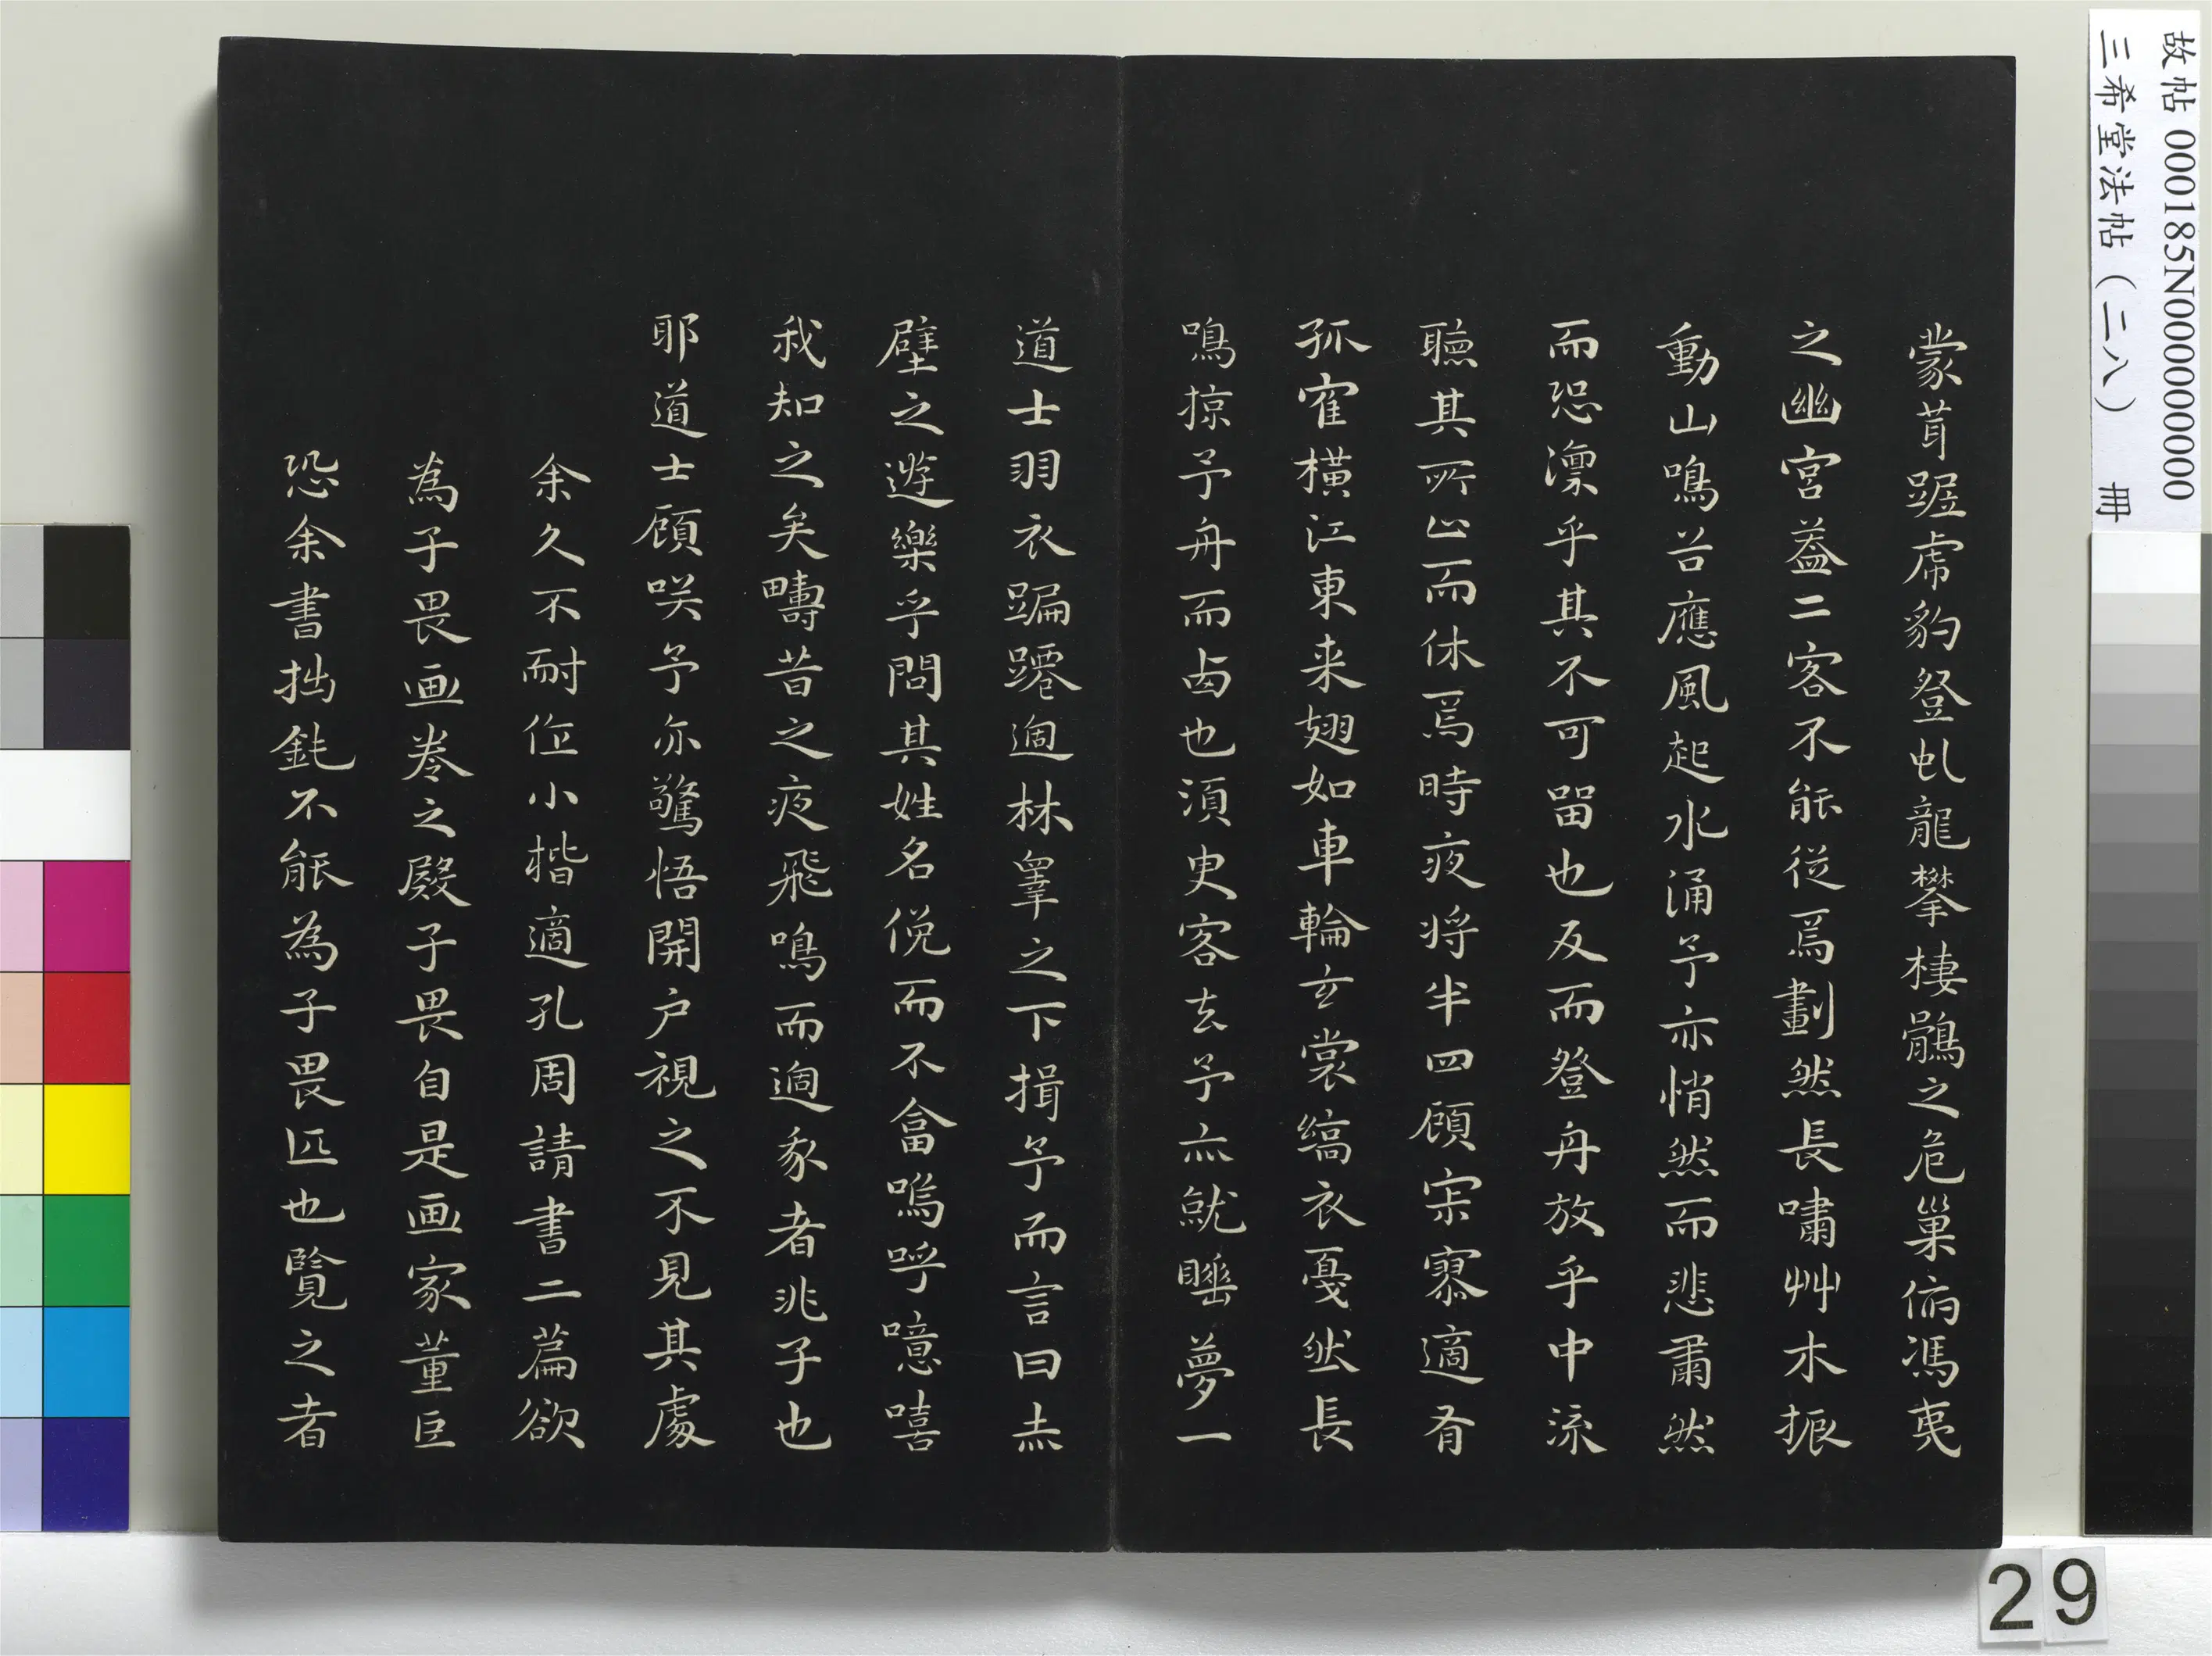 故帖 000185N000000000
三希堂法帖（二八） 冊
蒙茸踞虎豹登虬龍攀棲鶻之危巢俯馮夷
之幽宮蓋二客不能從焉劃然長嘯艸木振
動山鳴谷應風起水涌予亦悄然而悲肅然
而恐凜乎其不可留也反而登舟放乎中流
聽其所止而休焉時夜将半四顧寂寥適有
孤隺橫江東来翅如車輪玄裳縞衣戛然長
鳴掠予舟而西也湏臾客去予亦就睡夢一
道士羽衣蹁躚過林皋之下揖予而言曰赤
壁之遊樂乎問其姓名俛而不畣嗚呼噫嘻
我知之矣疇昔之夜飛鳴而過我者非子也
耶道士顧咲予亦驚悟開户視之不見其處
余久不耐作小楷適孔周請書二篇欲
為子畏画卷之殿子畏自是画家董巨
恐余書拙鈍不能為子畏匹也覽之者
29